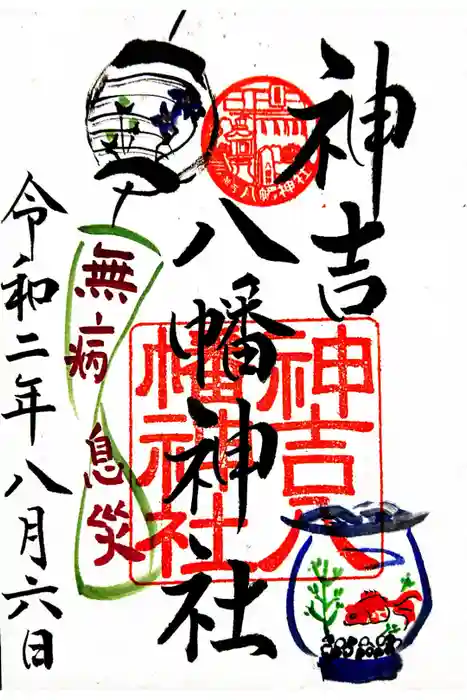 神吉
八幡神社
神吉八
幡神社
神吉八幡神社
無病
息災
令和二年八月六日